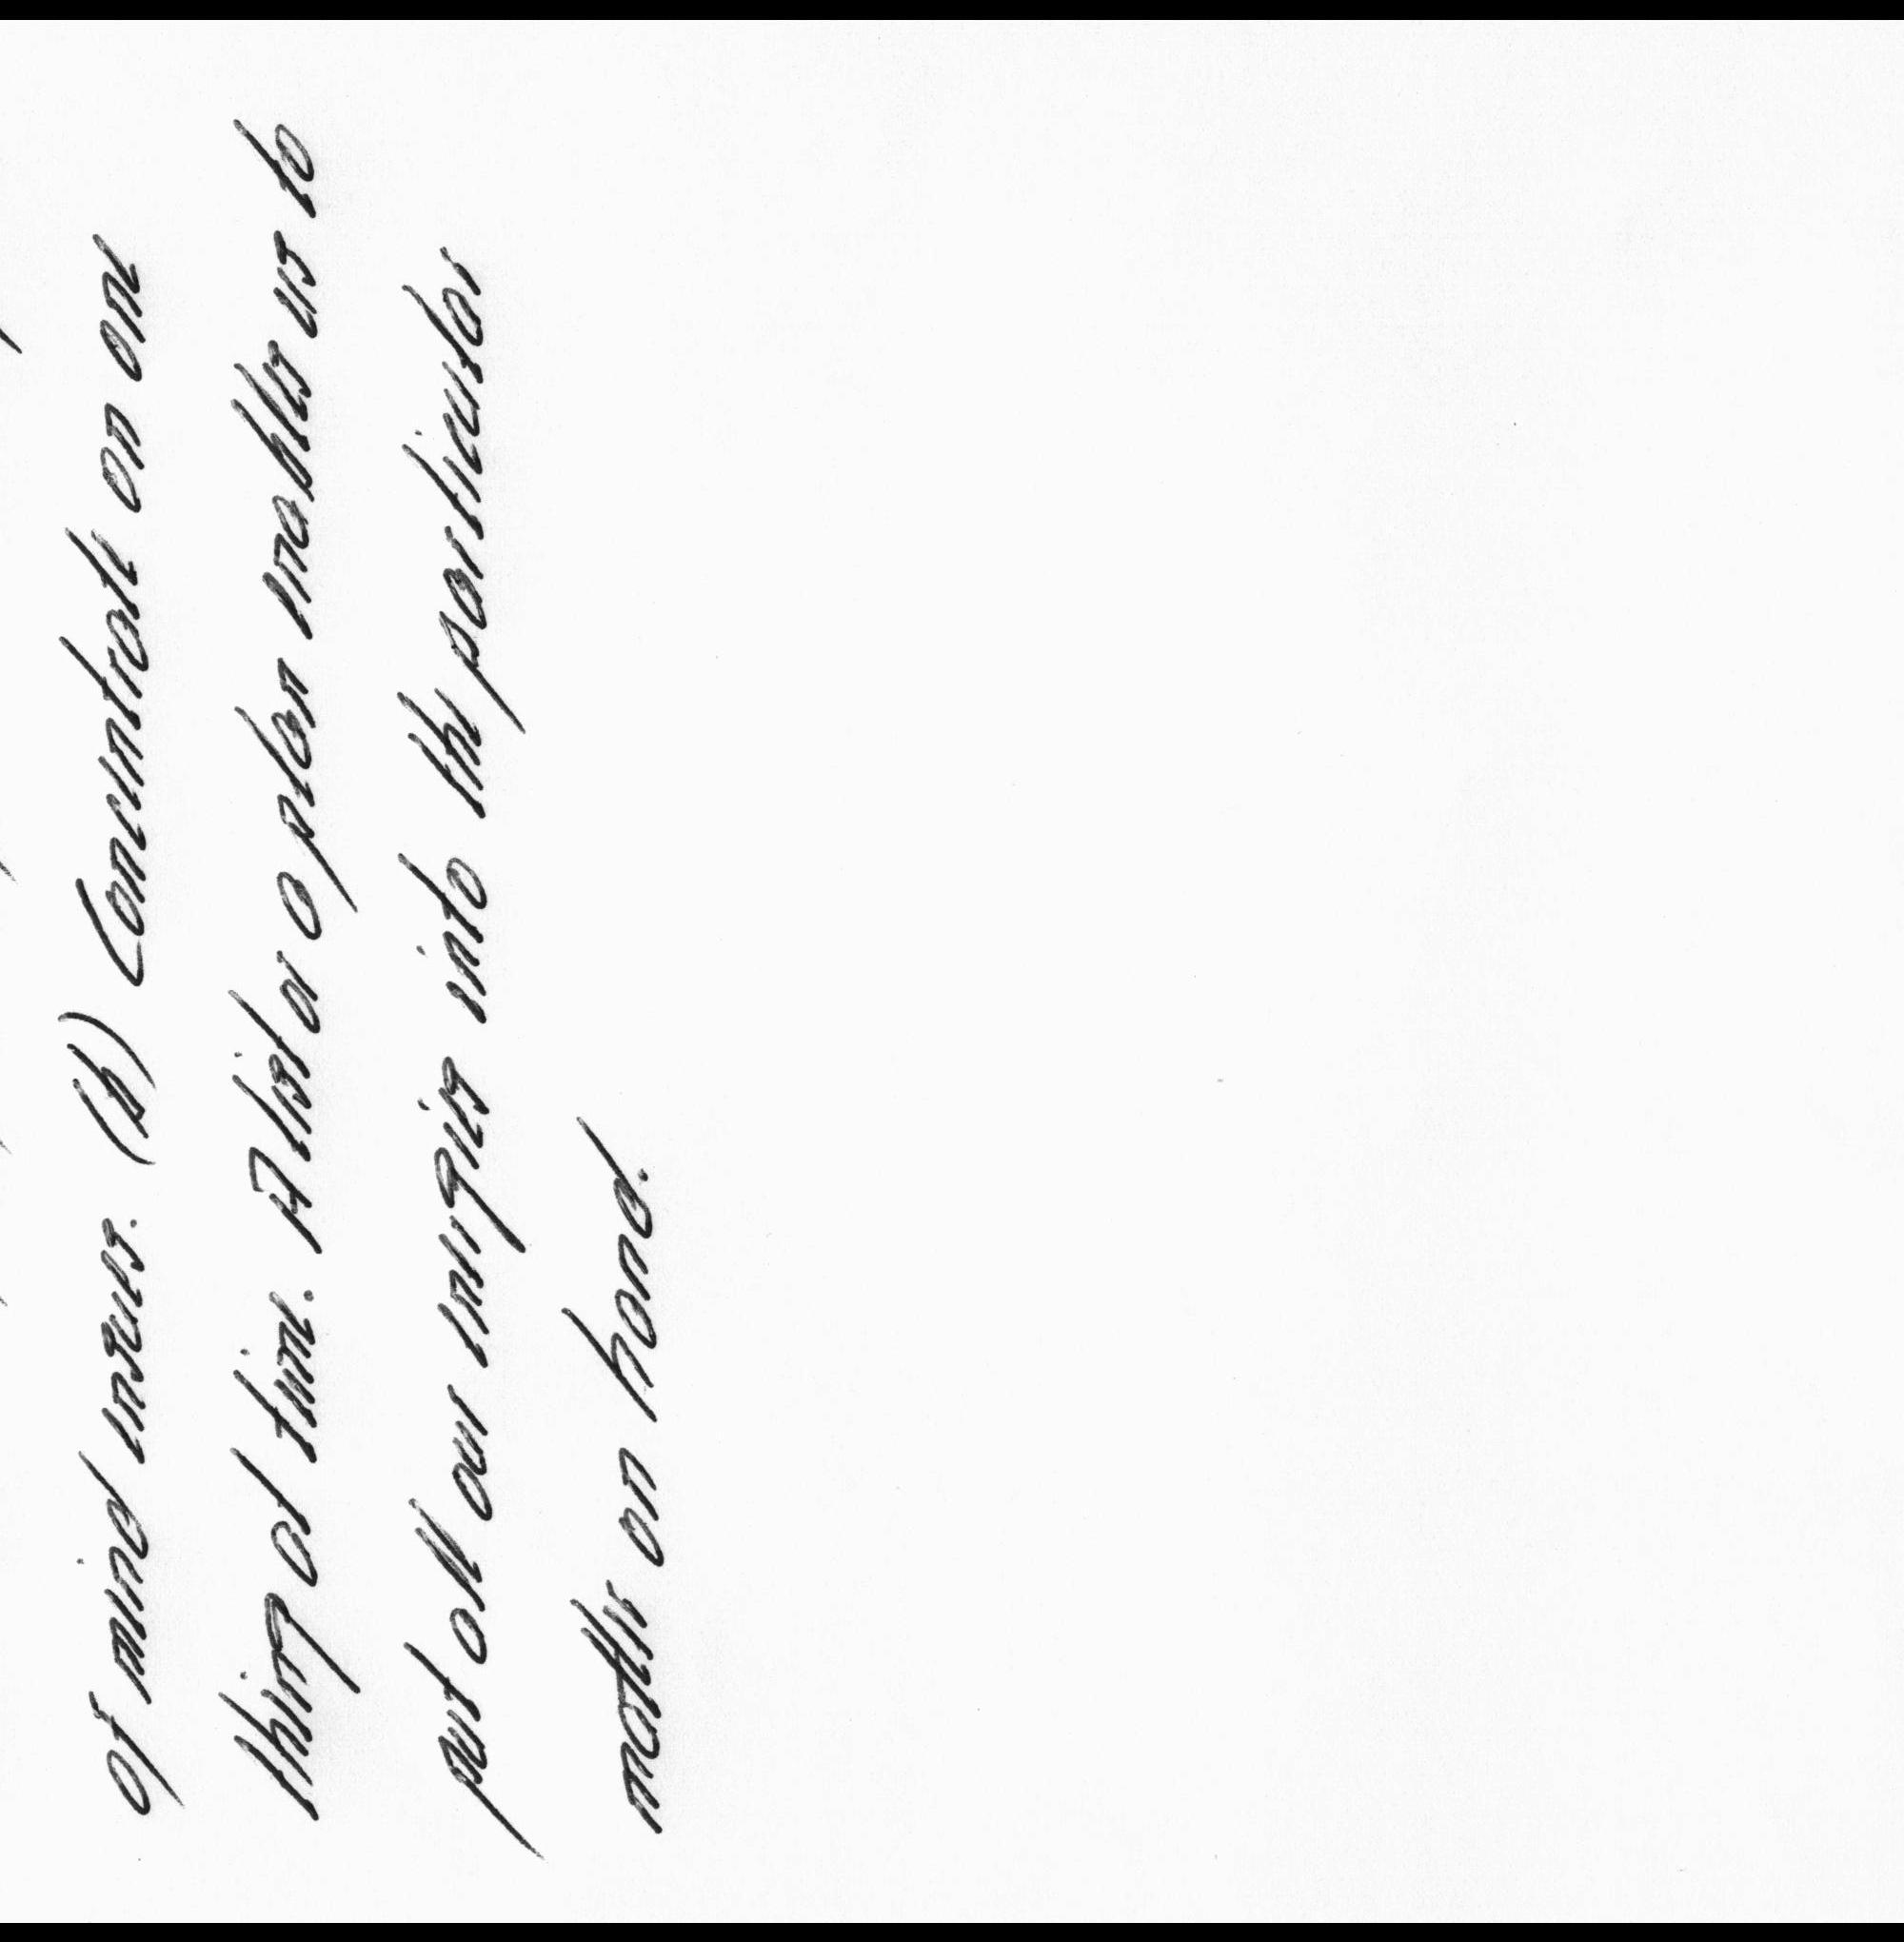 of mind ensues. (h) Concentrate on one
thing at time. A list or a plan enables us to
put all our energies into the particular
matter on hand.